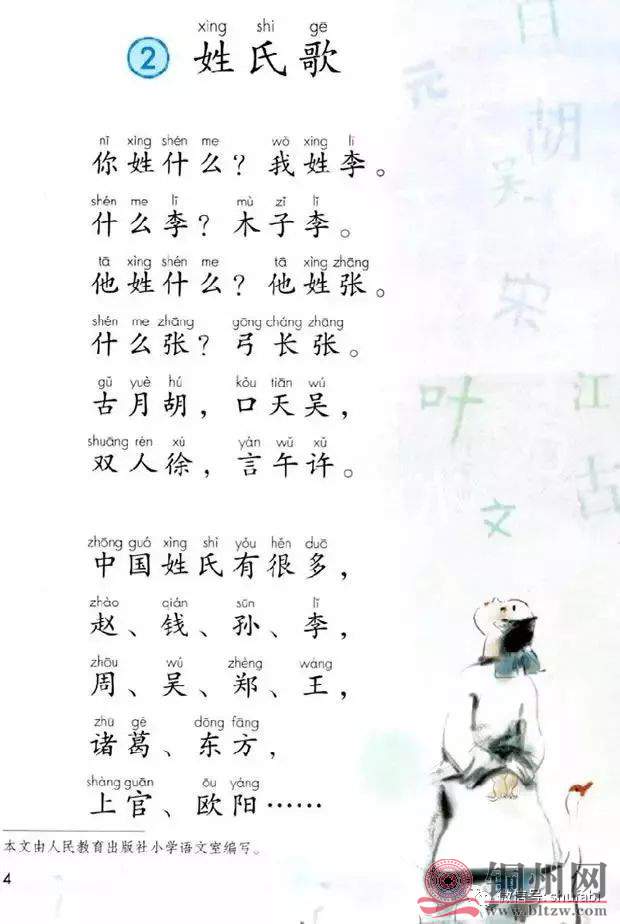 xìng shì gē
2 姓氏歌
nǐ xìng shén me wǒ xìng lǐ
你姓什么？我姓李。
shén me lǐ mù zǐ lǐ
什么李？木子李。
tā xìng shén me tā xìng zhāng
他姓什么？他姓张。
shén me zhāng gōng cháng zhāng
什么张？弓长张。
gǔ yuè hú kǒu tiān wú
古月胡，口天吴，
shuāng rén xú yán wǔ xǔ
双人徐，言午许。
zhōng guó xìng shì yǒu hěn duō
中国姓氏有很多，
zhào qián sūn lǐ
赵、钱、孙、李，
zhōu wú zhèng wáng
周、吴、郑、王，
zhū gě dōng fāng
诸葛、东方，
shàng guān ōu yáng
上官、欧阳……
本文由人民教育出版社小学语文室编写。
4
元
胡
吴
叶
江
古
文
铜州网
微信号: shufabj
www.bltzw.com